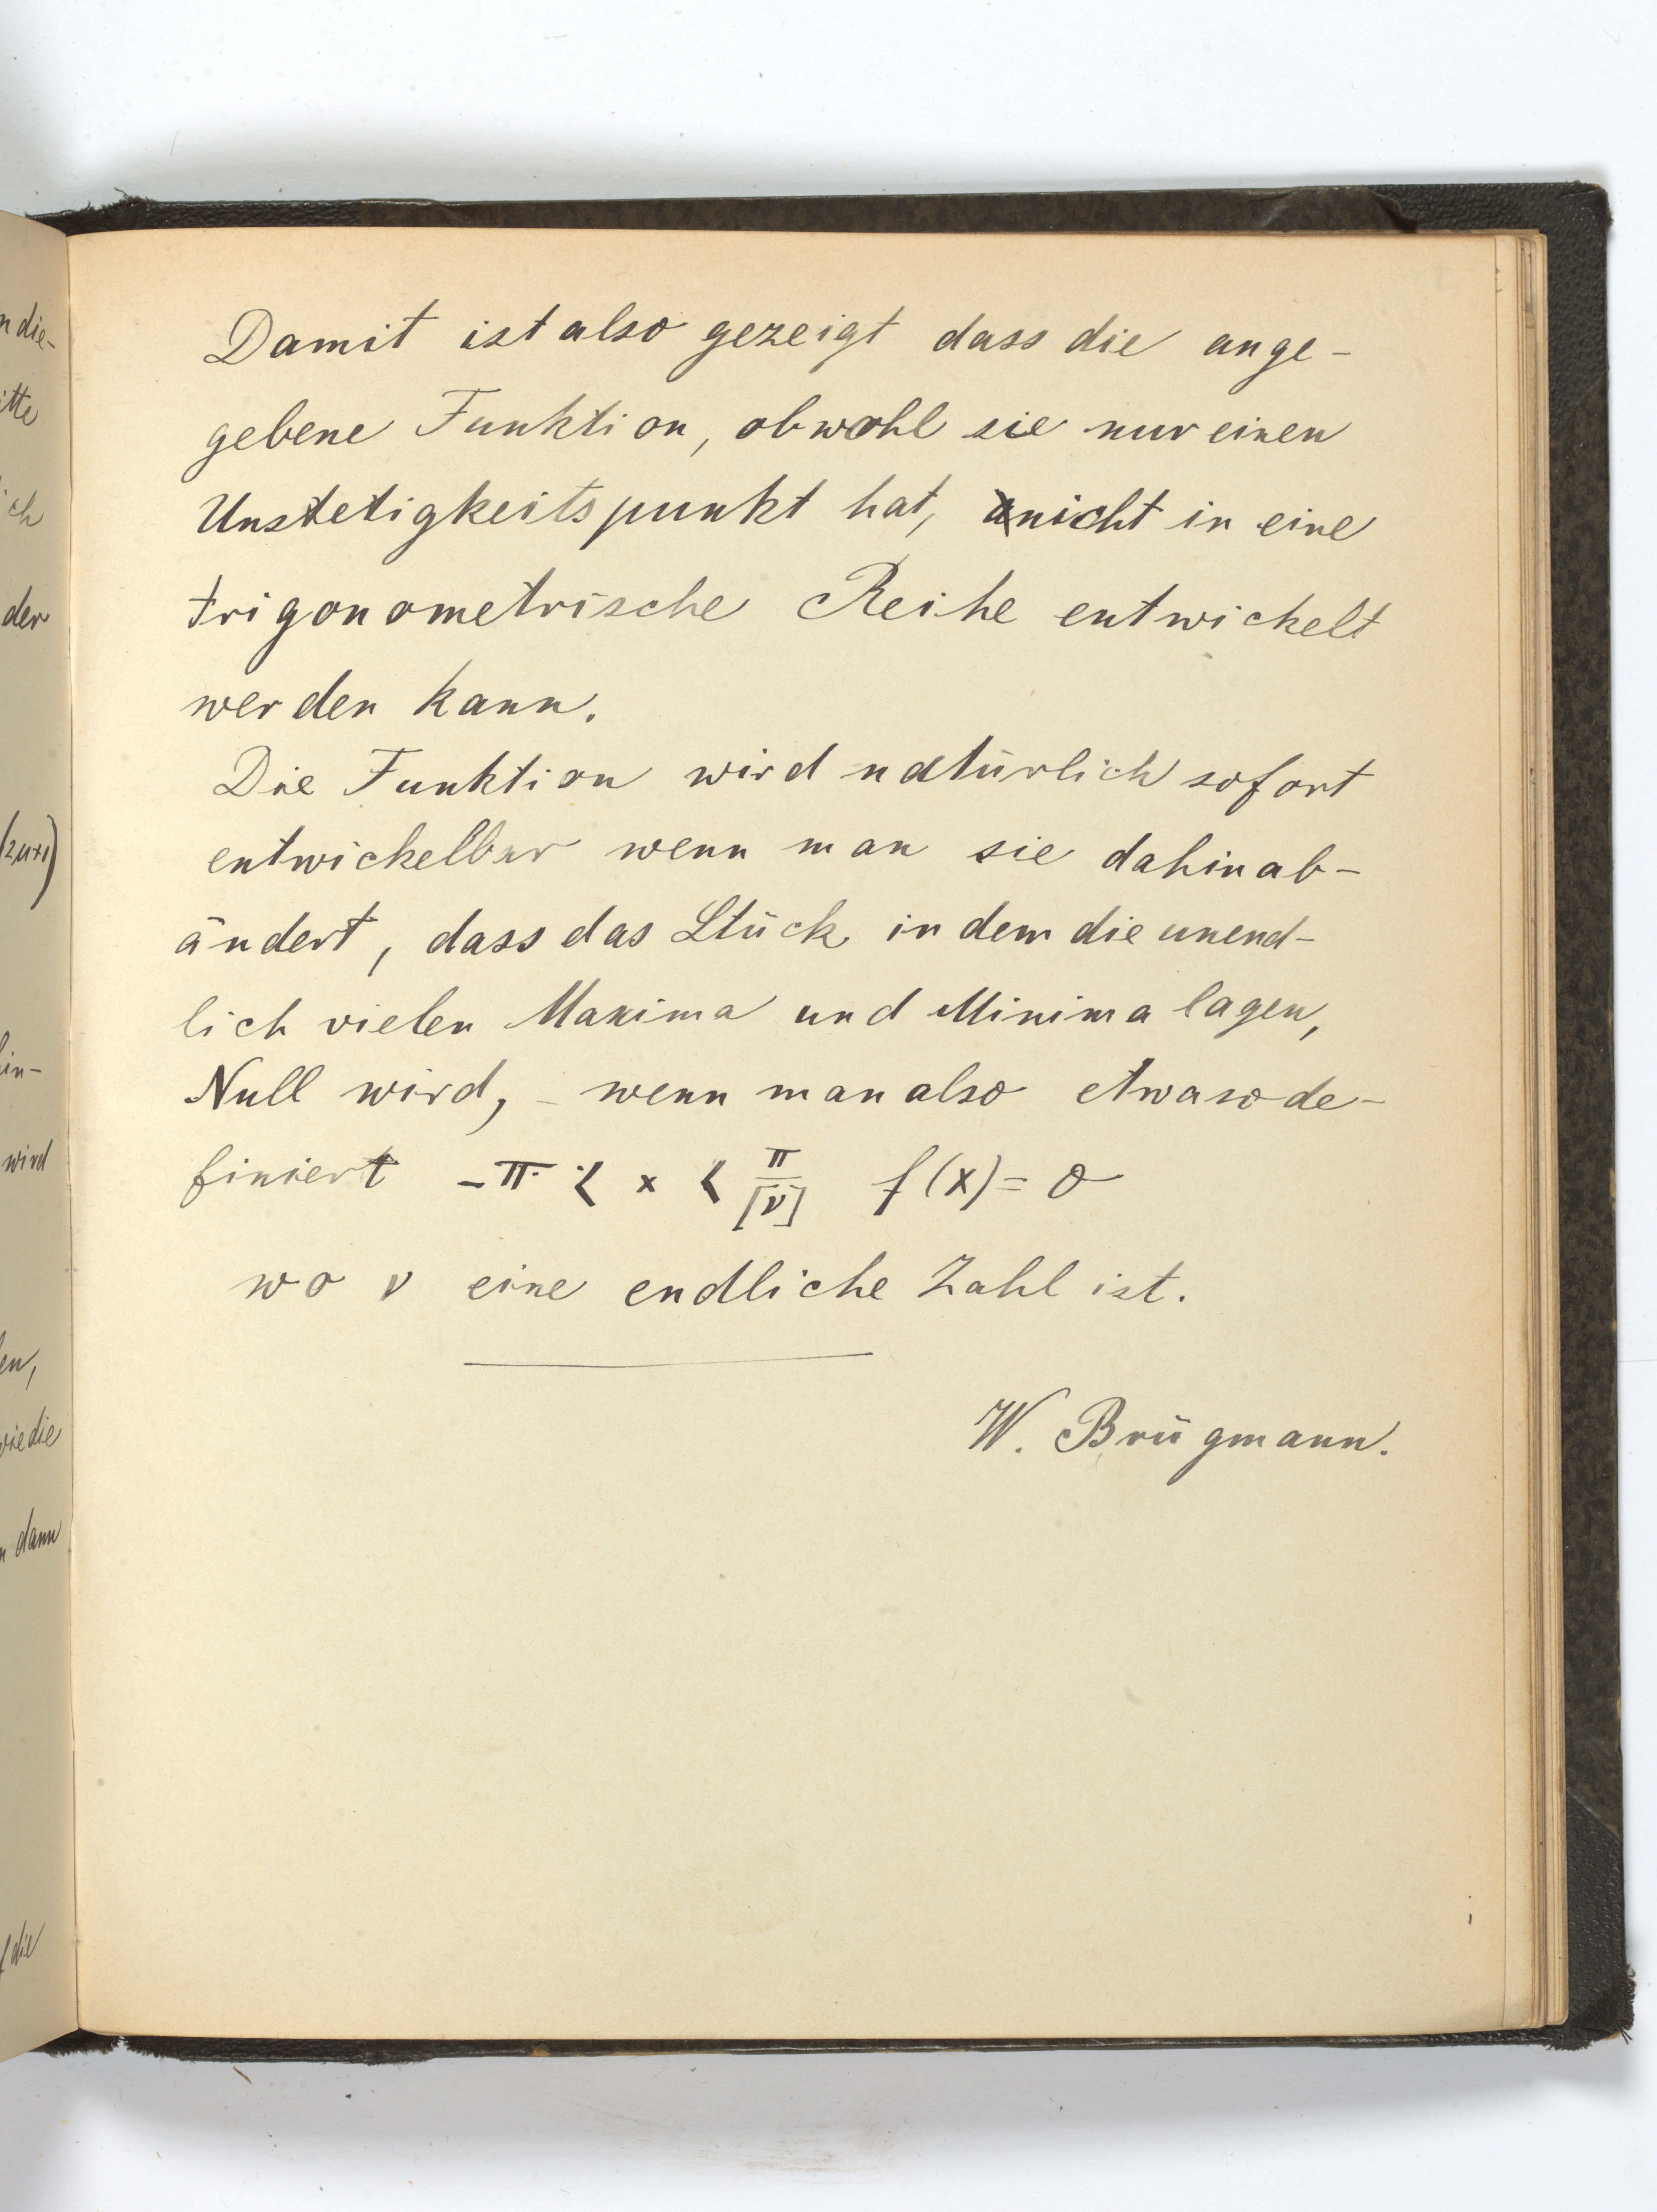 Damit ist also gezeigt dass die ange-
gebene Funktion, obwohl sie nur einen
Unstetigkeitspunkt hat, nicht in eine
trigonometrische Reihe entwickelt
werden kann.
Die Funktion wird natürlich sofort
entwickelbar wenn man sie dahin ab-
ändert, dass das Stück in dem die unend-
lich vielen Maxima und Minima lagen,
Null wird, - wenn man also etwa so de-
finiert -π < x < π/[ν] f(x) = 0
wo ν eine endliche Zahl ist.
W. Brügmann.
n die-
itte
ich
der
(2μ+1)
in-
wird
en,
wie die
dann
die